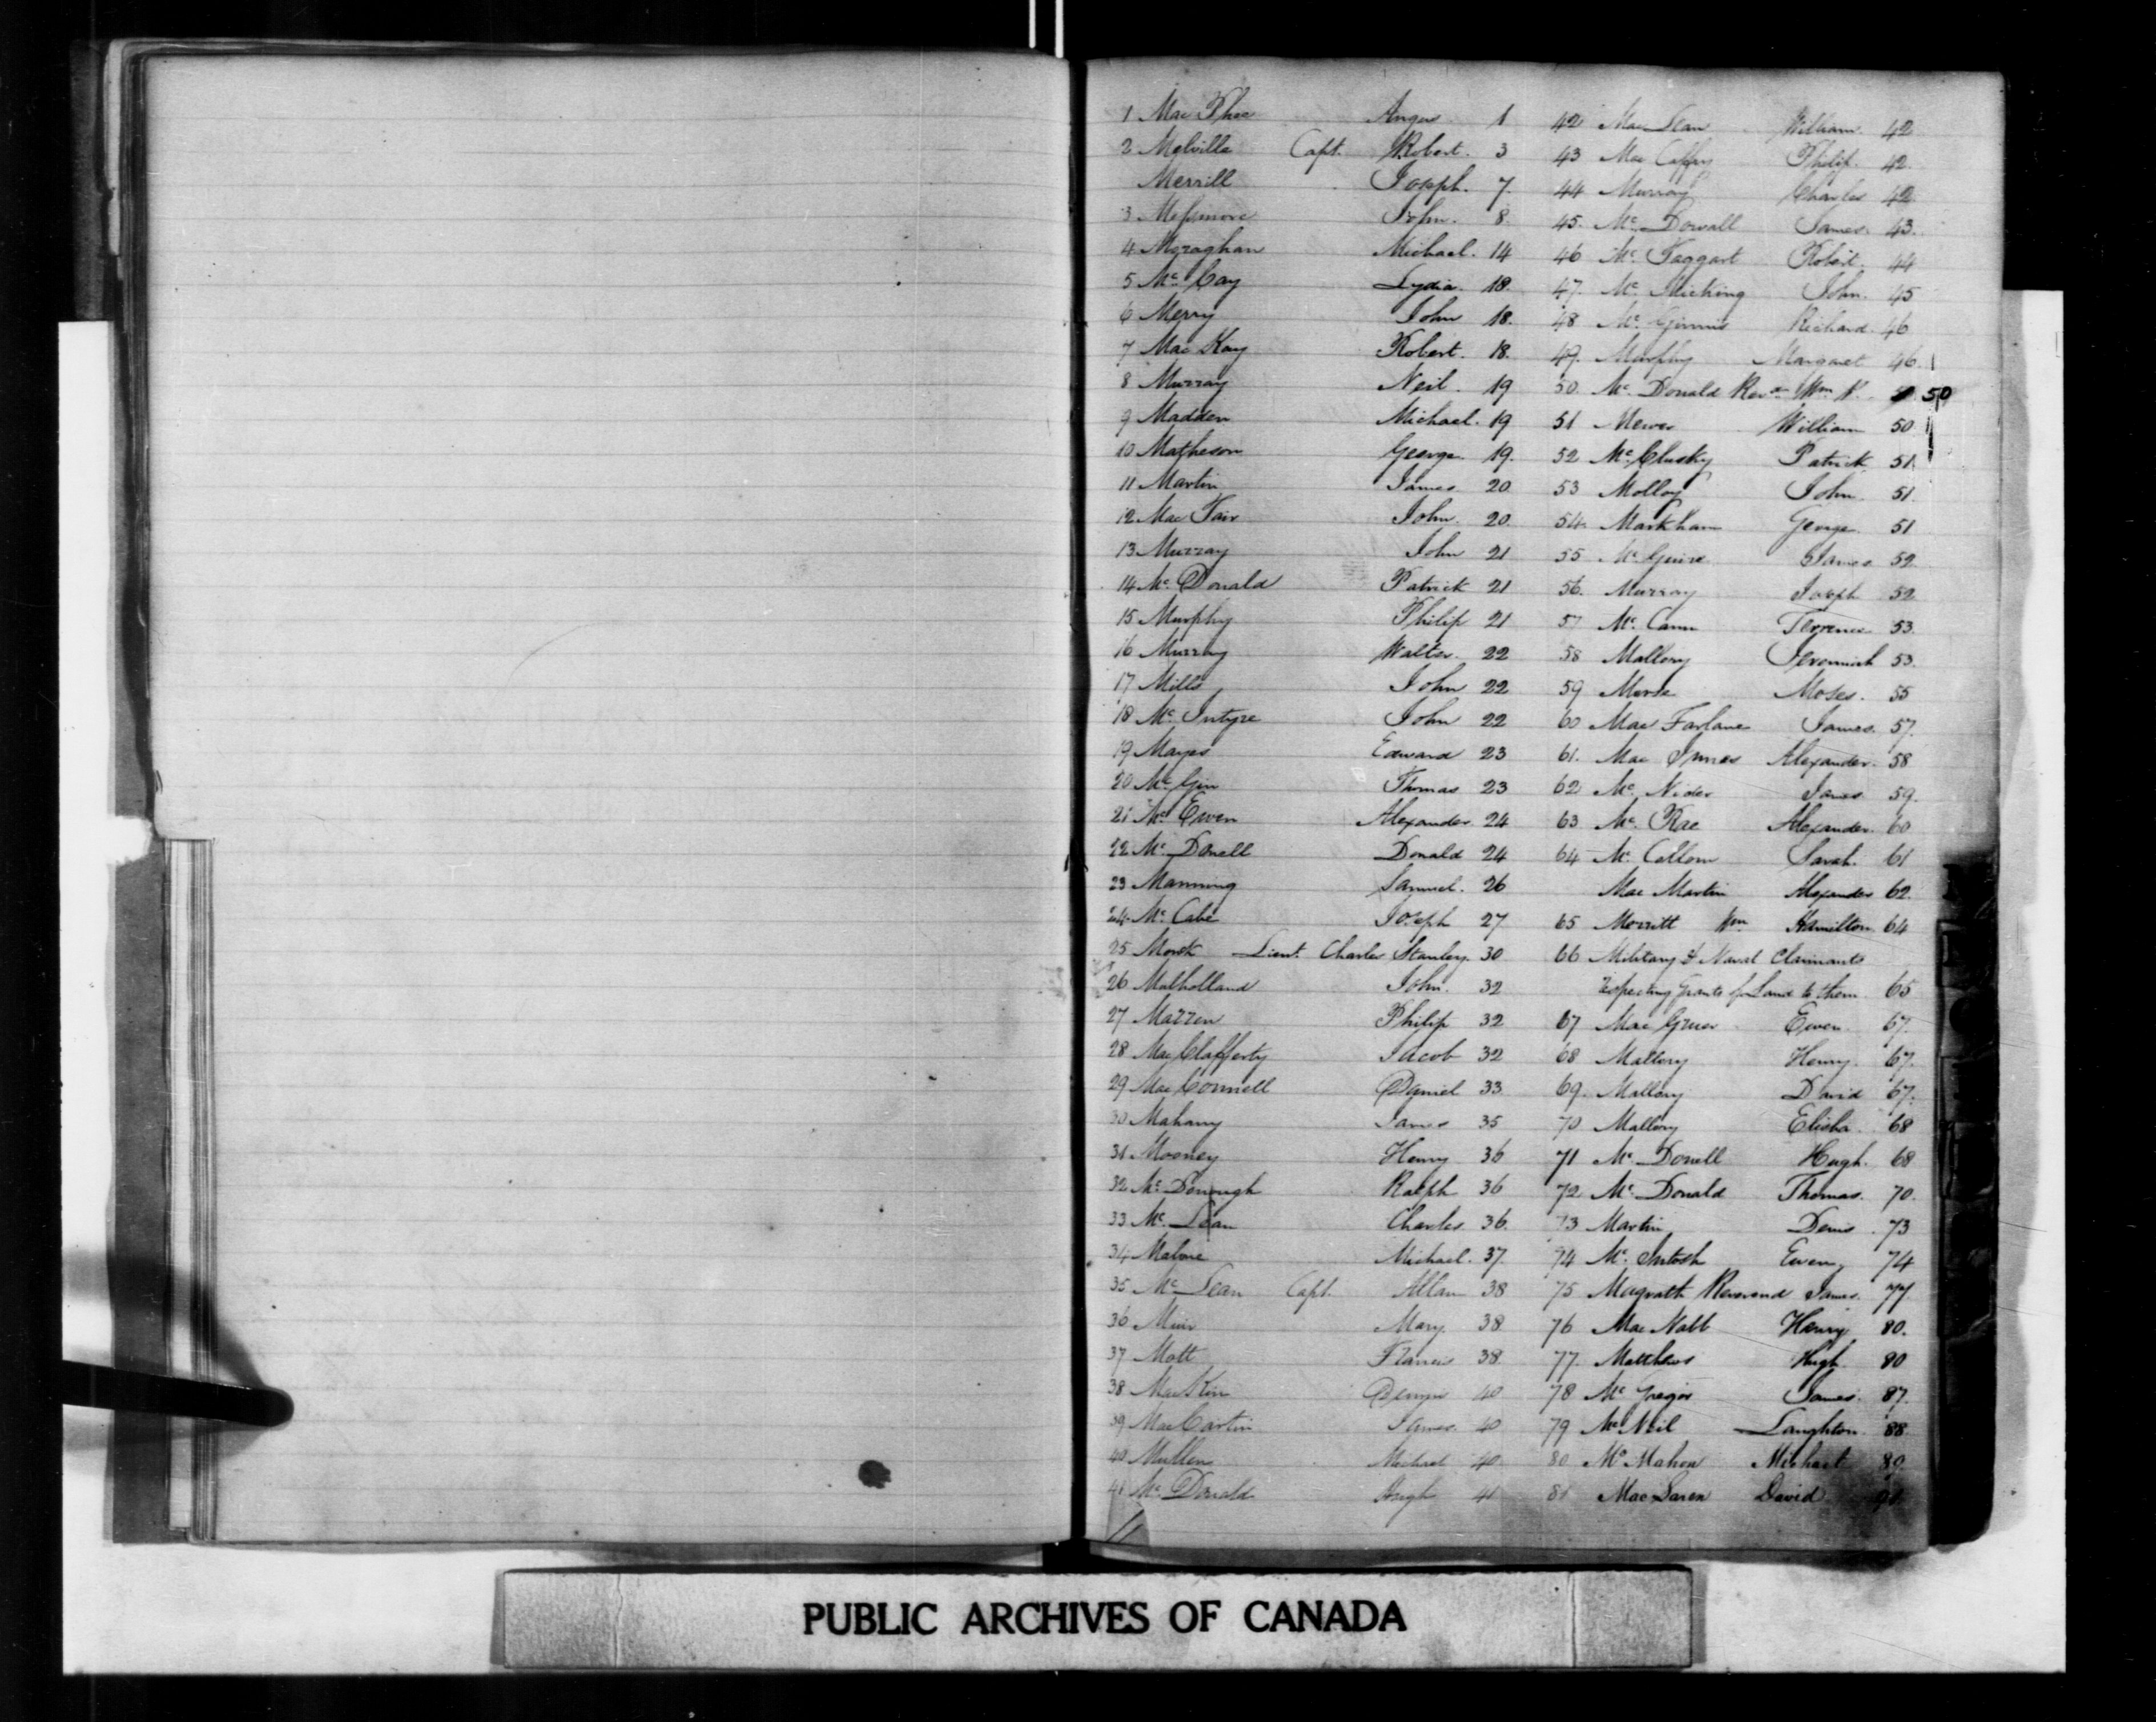 1 Mac Phee Angus 1
2 Melville Capt. Robert. 3
Merrill Joseph. 7.
3 Messmore John. 8.
4 Meraghan Michael. 14
5 Mc. Cay Lydia. 18.
6 Merry John 18.
7 Mac Kay Robert. 18.
8 Murray Neil. 19
9 Madden Michael. 19
10 Matheson George. 19.
11 Martin James 20
12 Mac Fair John. 20.
13 Murray John 21
14 Mc. Donald Patrick 21
15 Murphy Philip 21
16 Murray Walter. 22
17 Mills John 22
18 Mc. Intyre John 22
19 Mayes Edward 23
20 Mc. Gin Thomas 23
21 Mc. Ewen Alexander. 24
22 Mc. Donell Donald 24
23 Manning Samuel. 26
24 Mc. Cabe Joseph 27
25 Monk Lieut. Charles Stanley. 30
26 Mulholland John. 32
27 Marren Philip 32
28 Mac Clafferty Jacob 32
29 Mac Connell Daniel 33
30 Mahany James 35
31 Mooney Henry 36
32 Mc. Donough Ralph 36
33 Mc. Lean Charles 36.
34 Malone Michael. 37.
35 Mc. Lean Capt. Allan 38
36 Muir Mary. 38
37 Mott Francis 38
38 Mac Kin 40
39 Mac Cartin James. 40
40 Mullen Michael 40
41 Mc. Donald Hugh 41
42 Mac Lean William. 42
43 Mac Caffry Philip. 42.
44 Murray Charles 42.
45. Mc. Dowall James. 43.
46 Mc. Taggart Robert. 44
47. Mc. Micking John. 45
48 Mc. Ginnis Richard. 46
49. Murphy Margaret 46.
50. Mc. Donald Revd. Wm. 50
51 Mewes William 50
52 Mc. Clusky Patrick 51.
53 Molloy John. 51
54. Markham George. 51
55 Mc. Guire James 52
56. Murray Joseph 52
57 Mc. Cann Terrence. 53.
58 Mallory Jeremiah 53.
59 Morse Moses. 55
60 Mac Farlane James. 57.
61. Mac Innes Alexander. 58
62 Mc. Nider James 59.
63 Mc. Rae Alexander. 60
64 Mc. Collom Sarah. 61
Mac Martin Alexander 62.
65 Merritt Wm. Hamilton 64
66 Military & Naval Claimants
respecting Grants of Land to them. 65
67 Mac Gruer Ewen. 67.
68 Mallory Henry. 67.
69. Mallory David 67.
70 Mallory Elisha. 68
71 Mc. Donell Hugh. 68
72 Mc. Donald Thomas. 70.
73 Martin Denis. 73
74 Mc. Intosh Ewen 74
75 Magrath Reverend James. 77.
76 Mac Nabb Henry 80.
77. Matthews Hugh. 80
78 Mc. Gregor James. 87.
79 Mc. Neil Laughton. 88
80 Mc. Mahon Michael
81 Mac Laren David
PUBLIC ARCHIVES OF CANADA